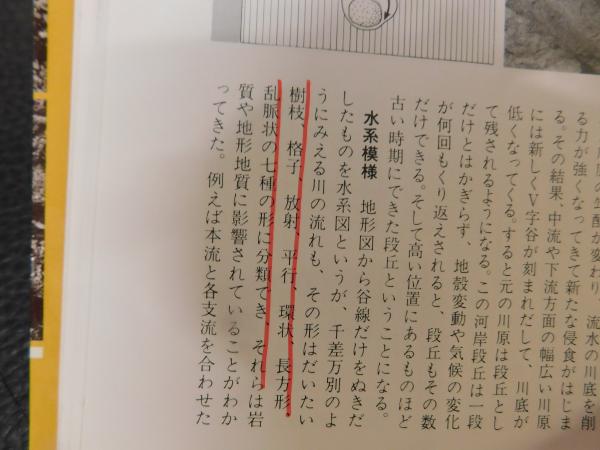 る力が強くなってきて新たな侵食がはじま
る。その結果、中流や下流方面の幅広い川原
には新しくV字谷が刻まれだして、川底が
低くなってくる。すると元の川原は段丘とし
て残されるようになる。この河岸段丘は一段
だけとはかぎらず、地殻変動や気候の変化
が何回もくり返えされると、段丘もその数
だけできる。そして高い位置にあるものほど
古い時期にできた段丘ということになる。
水系模様 地形図から谷線だけをぬきだ
したものを水系図というが、千差万別のよ
うにみえる川の流れも、その形はだいたい
樹枝 格子 放射、平行、環状、長方形
乱脈状の七種の形に分類でき、それらは岩
質や地形地質に影響されていることがわか
ってきた。例えば本流と各支流を合わせた